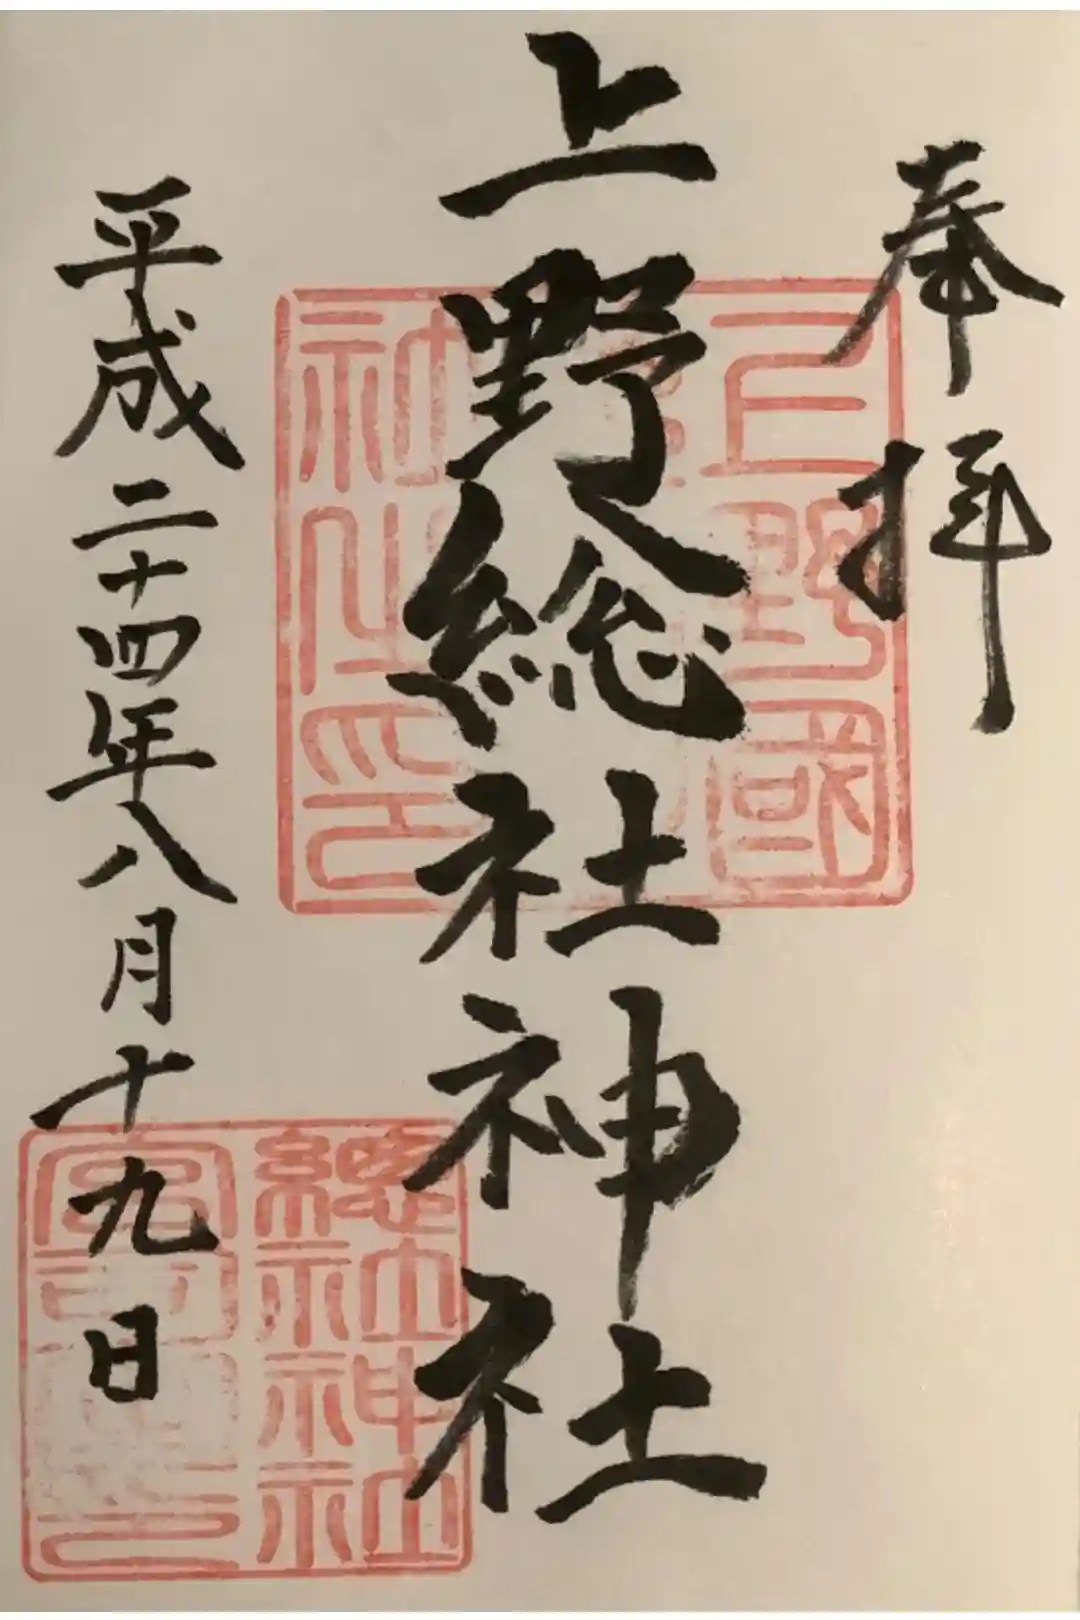 奉拝
上野総社神社
平成二十四年八月十九日
上野國
社之印
総社神社